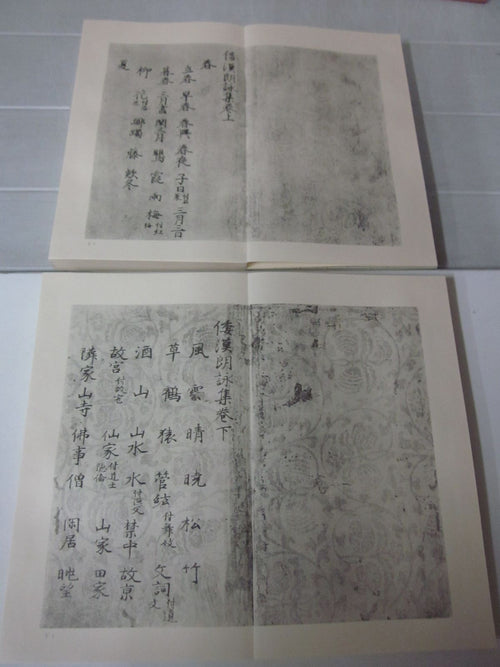 倭漢朗詠集巻上
春
立春 早春 春興 春夜 子日 三月三日
暮春 三月盡 閏三月 鶯 霞 雨 梅 付紅梅
柳 花 躑躅 藤 款冬
夏
倭漢朗詠集巻下
風 雲 晴 暁 松 竹
草 鶴 猿 管絃 付舞妓 文詞 付遺文
酒 山 山水 水 付漁父 禁中 故京
故宮 付故宅 仙家 付道士隠倫 山家 田家
隣家 山寺 佛事 僧 閑居 眺望